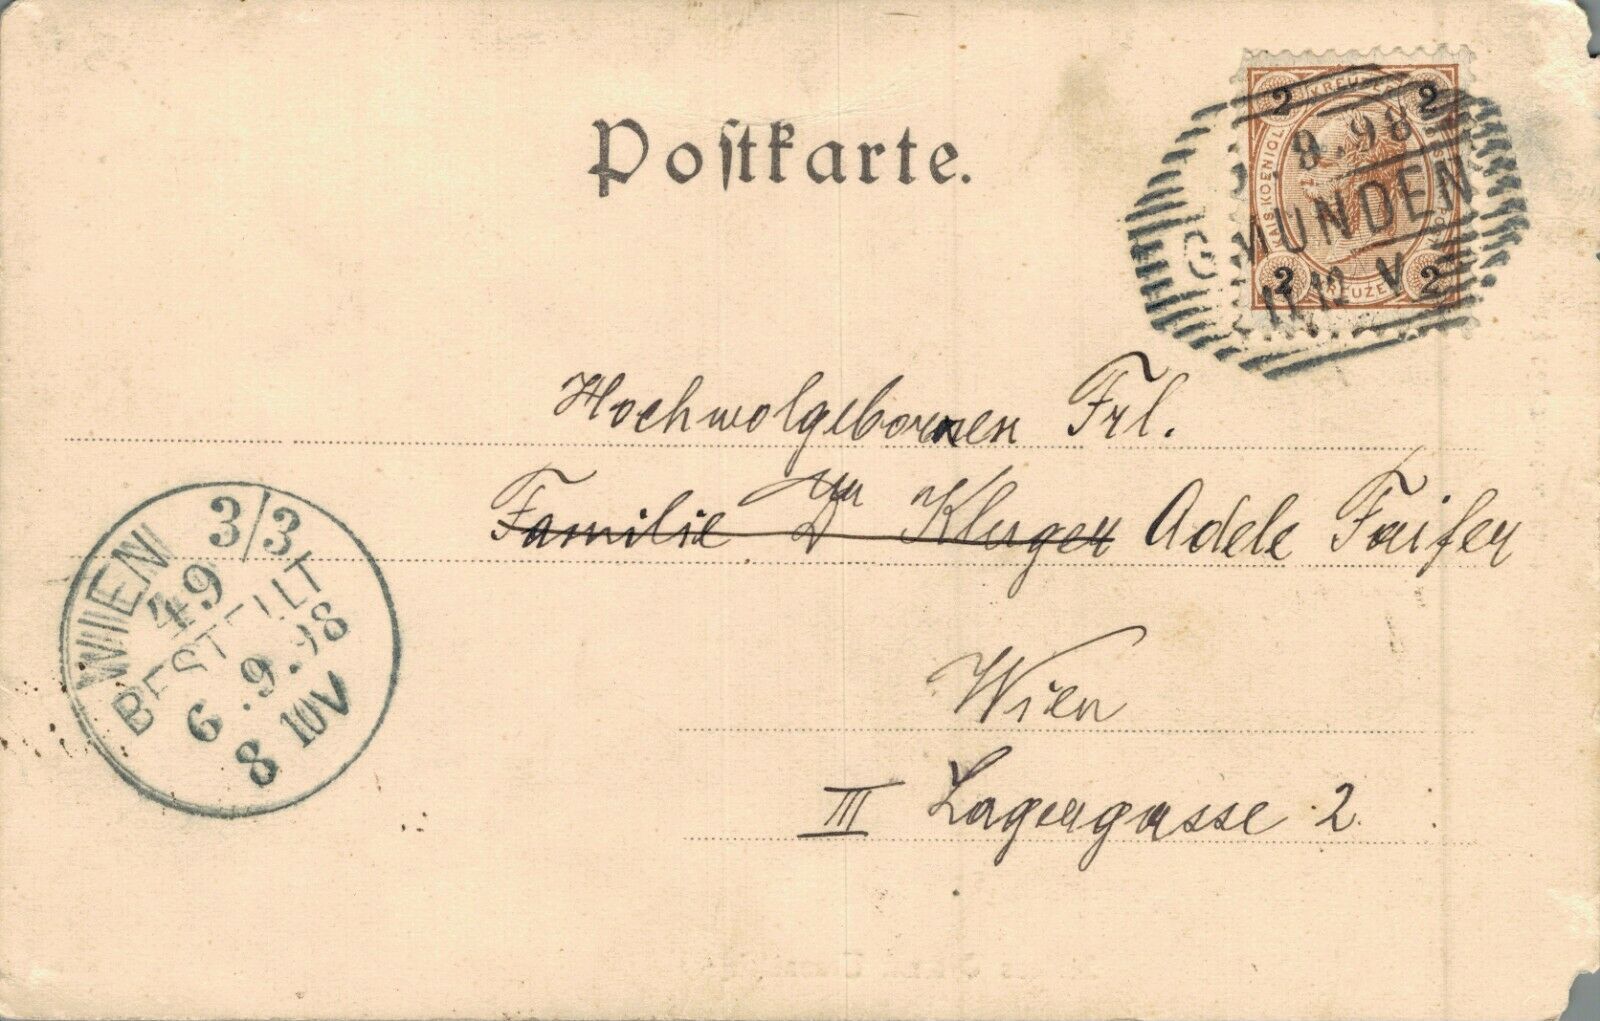 Postkarte.
2 KREUZER 2
KAIS. KOENIGL.
2 KREUZER 2
9.98
GMUNDEN
11.12 V
Hochwolgebornen Frl.
Familie Dr Kluger Adele Faifer
Wien
III Lagergasse 2.
WIEN 3/3
49
BESTELLT
6.9.98
8 10V